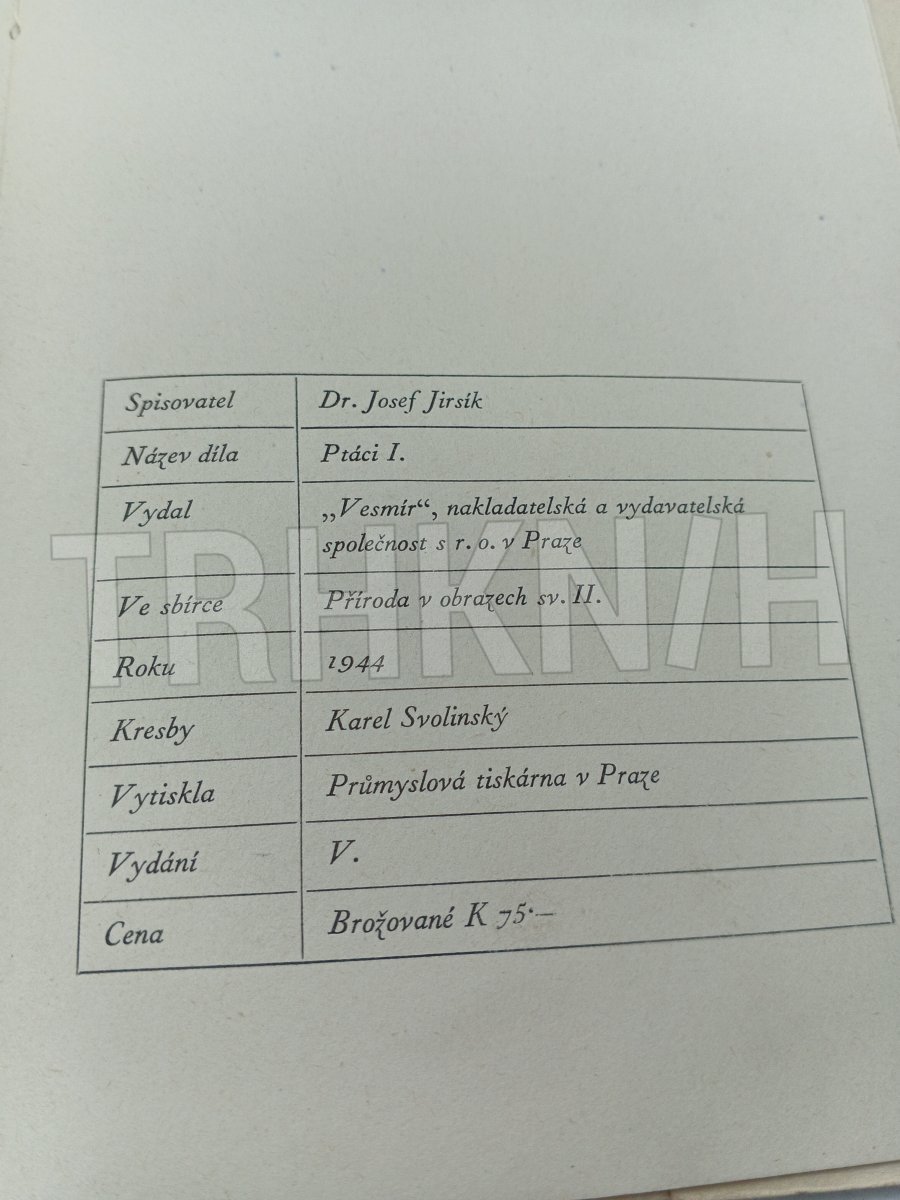 Spisovatel Dr. Josef Jirsík
Název díla Ptáci I.
Vydal „Vesmír“, nakladatelská a vydavatelská
společnost s r. o. v Praze
Ve sbírce Příroda v obrazech sv. II.
Roku 1944
Kresby Karel Svolinský
Vytiskla Průmyslová tiskárna v Praze
Vydání V.
Cena Brožované K 75·—
TRHKNIH